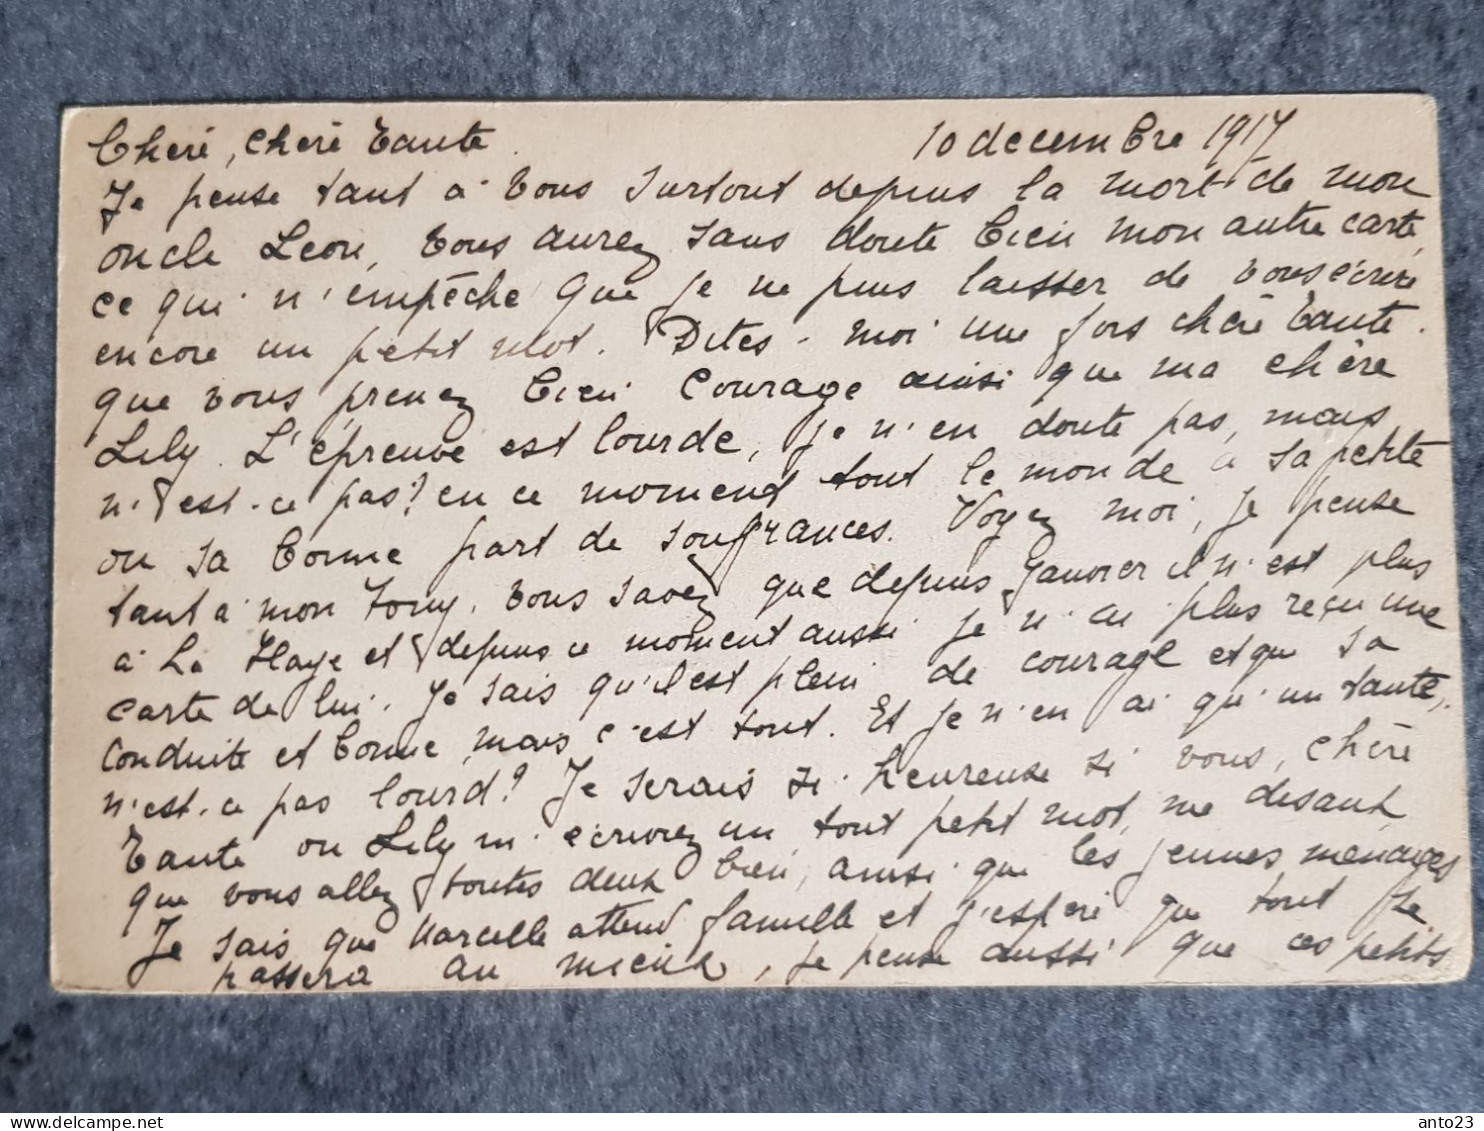 Cheré, cheré Tante
10 decembre 1917
Je pense tant à vous surtout depuis la mort de mon
oncle Leon, vous aurez sans doute bien mon autre carte,
ce qui n'empêche que je ne puis laisser de vous écrire
encore un petit mot. Dites-moi une fois chère Tante
que vous prenez bien courage ainsi que ma chère
Lily. L'épreuve est lourde, je n'en doute pas, mais
n'est-ce pas? en ce moment tout le monde a sa petite
ou sa bonne part de souffrances. Voyez moi, je pense
tant à mon Tony, vous savez que depuis Janvier il n'est plus
à La Haye et depuis ce moment aussi je n'ai plus reçu une
carte de lui. Je sais qu'il est plein de courage et que sa
conduite et bonne, mais c'est tout. Et je n'en ai qu'un tante,
n'est-ce pas lourd? Je serais si heureuse si vous, chère
Tante ou Lily m'écrivez un tout petit mot, me disant,
que vous allez toutes deux bien, ainsi que les jeunes menages
Je sais que Marcelle attend famille et j'espère que tout se
passera au mieux, je pense aussi que ces petits
anto23